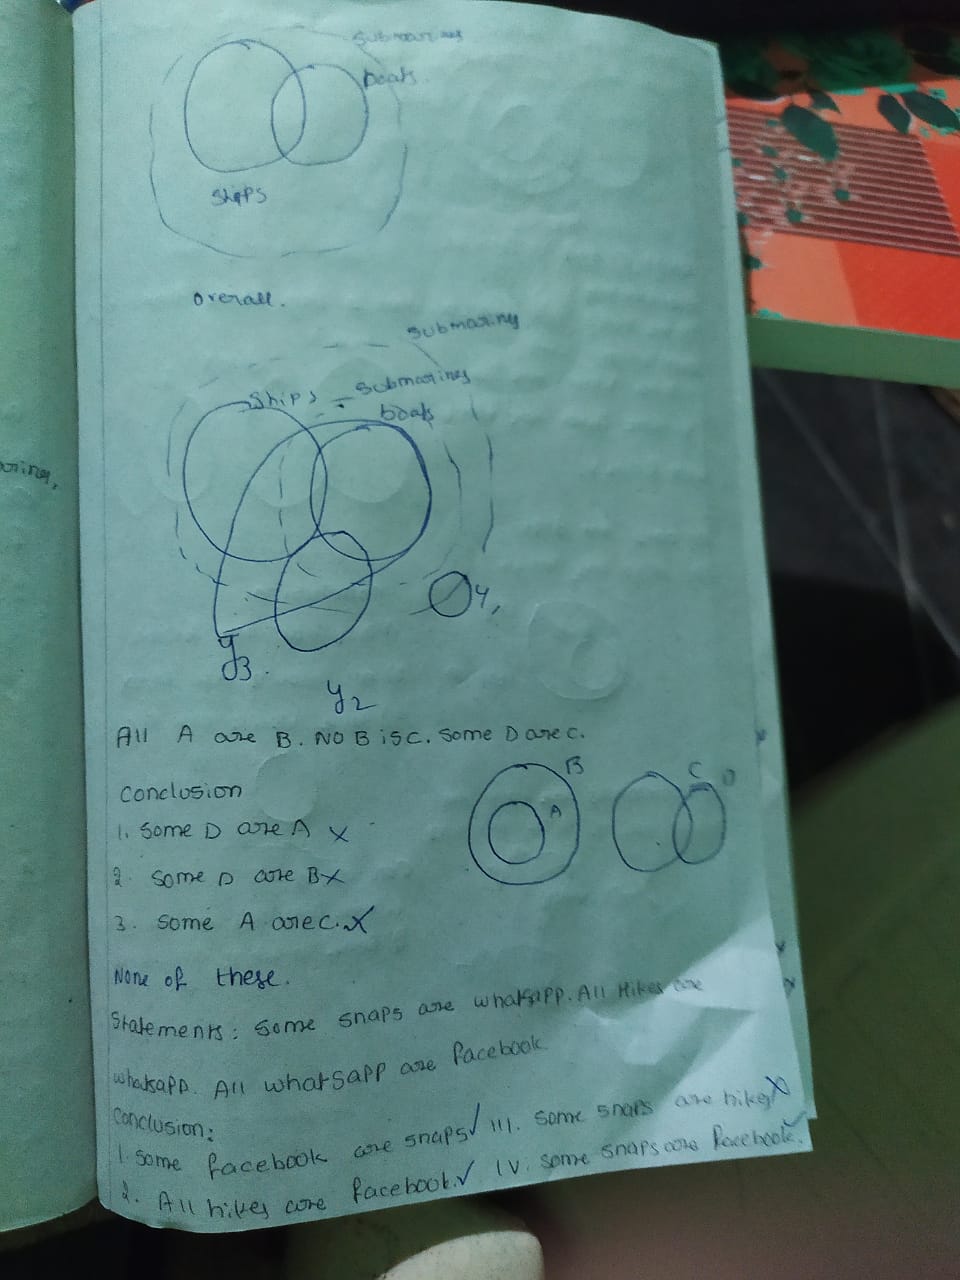 Submarines
boats.
Ships
Overall.
Submarines
Ships = Submarines
boats
Y1
Y3.
Y2
All A are B. NO B is C. Some D are C.
Conclusion
B
C D
A
1. Some D are A X
2. Some D are B X
3. Some A are C. X
None of these.
Statements: Some snaps are whatsapp. All Hikes are
whatsapp. All whatsapp are facebook
Conclusion:
1. Some facebook are snaps ✓ III. Some snaps are hikes X
2. All hikes are facebook. ✓ IV. Some snaps are facebook. ✓